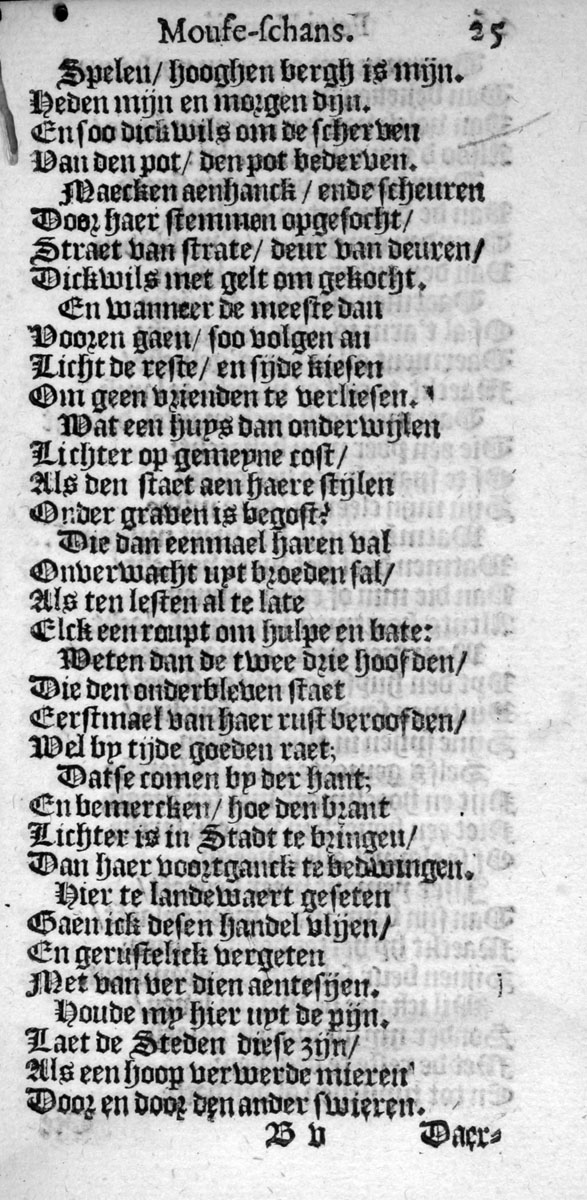 Mouſe-ſchans. 25
Spelen/ hooghen bergh is mijn.
Heden mijn en morgen dijn.
En soo dickwils om de scherven
Van den pot/ den pot bederven.
Maecken aenhanck / ende scheuren
Door haer stemmen opgesocht/
Straet van strate/ deur van deuren/
Dickwils met gelt om gekocht.
En wanneer de meeste dan
Vooren gaen/ soo volgen an
Licht de reste/ en sijde kiesen
Om geen vrienden te verliesen.
Wat een huys dan onderwijlen
Lichter op gemeyne cost/
Als den staet aen haere stijlen
Onder graven is begost?
Die dan eenmael haren val
Onverwacht uyt broeden sal/
Als ten lesten al te late
Elck een roupt om hulpe en bate:
Weten dan de twee drie hoofden/
Die den onderbleven staet
Eerstmael van haer rust beroofden/
Wel by tijde goeden raet;
Datse comen by der hant;
En bemercken/ hoe den brant
Lichter is in Stadt te bringen/
Dan haer voortganck te bedwingen.
Hier te landewaert geseten
Gaen ick desen handel vlijen/
En gerustelick vergeten
Met van ver dien aentesijen.
Houde my hier uyt de pijn.
Laet de Steden diese zijn/
Als een hoop verwerde mieren
Door en door den ander swieren.
B v Daer-